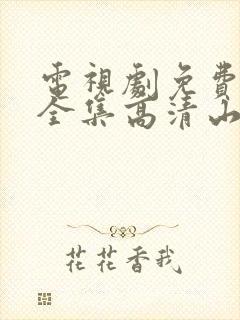 電視劇免費
全集高清山
花花香我